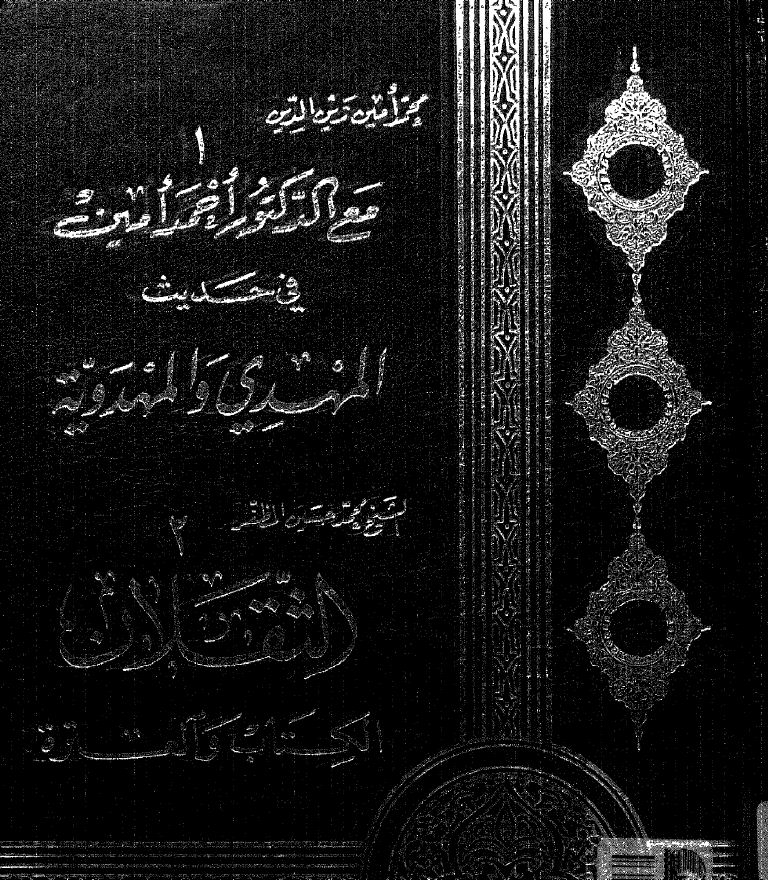 محمد أمين زين الدين
١
مَع الدّكتور أحْمَد أمين
في حَديث
المهْدِي وَالمهْدَويّة
الشيخ محمد حسين المظفر
٢
الثّقَلان
الكِتَابُ وَالعترة